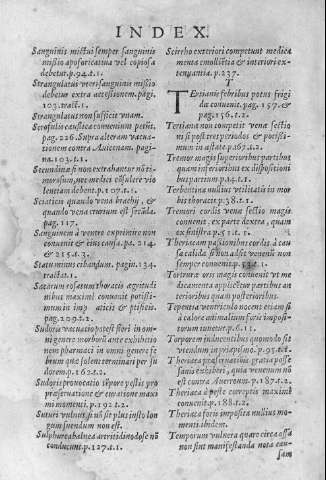 INDEX.
Sanguinis mictui semper sanguinis
missio apoforicatiua vel copiosa
debetur. p. 94. t. 1.
Strangulatus vteri sanguinis missio
debetur extra accessionem. pagi.
103. tract. 1.
Strangulatus non sufficit vnam.
Scrofulis caustica competunt
pag. 226. Supra alteram
contra Auicenam. pagina
103. t. 1.
Secundina si non extrahantur
medice consulere vio
lentam debent. p. 107. t. 1.
Sciaticis quando vena brachij, &
quando vena crurum est
pag. 117.
Sanguinem à ventre exprimere non
conuenit & eius causa. pa. 214.
& 215. t. 3.
Status minus cibandum. pagin. 134.
tracta. 1.
Saccarum rosatum thoracis
maximè conuenit potissi-
mum in & ptisicis.
pag. 209. t. 2.
Sudoris vacuatio potest fieri in om-
ni genere morborum ante exhibitio
nem pharmaci in omni genere fe
brium quæ solent terminari per su
dorem. p. 162. t. 2.
Sudoris prouocatio semper postis pro
præseruatione & curatione maxi
mi momenti. p. 192. t. 2.
Suturi vulnus si vsit plus insto lon
gum suendum non est.
Sulphurea balnea arthritidi
conducunt. p. 127. t. 1.
Scirrho exteriori competunt medica
menta emollientia & interiori ex-
tenuantia. p. 237.
T
Tertianis febribus potus frigi
du conuenit. pag. 157. &
pag. 156. t. 2.
Tertiana non competit venæ sectio
nisi post tres periodos & potissi-
mum in æstate. p. 167. t. 2.
Tremor magis superioribus partibus
quam inferioribus ex dispositioni
bus partium. p. 14. t. 1.
Terbentina nullius vtilitatis in mor
bis thoracis. p. 38. t. 1.
Tremori cordis venæ sectio magis
conuenit, ex parte dextra, quam
ex sinistra. p. 51. t. 1.
Theriacam passionibus cordis à cau
sa calida si non adsit venenum non
semper conuenit. p. 53. t. 1.
Torturæ oris magis conuenit vt me
dicamenta applicetur partibus an
terioribus quam posterioribus.
Tepentia ventriculo nocent etiam si
à calore animalium fuerit imposi-
torum iuuetur. p. 61. t.
Torporem inducentibus quomodo sit
vtendum in pyrapismo. p. 95. t. 1.
Theriaca præseruatibus gratia posse
sanis exhiberi, quia venenum nō
est contra Aueroem. p. 187. t. 2.
Theriaca à peste correptis maximè
conuenit. p. 188. t. 2.
Theriaca foris imposita nullius mo-
menti. ibidem.
Temporum vulnera quare circa assa
non sint manifestanda nota cau-
sam